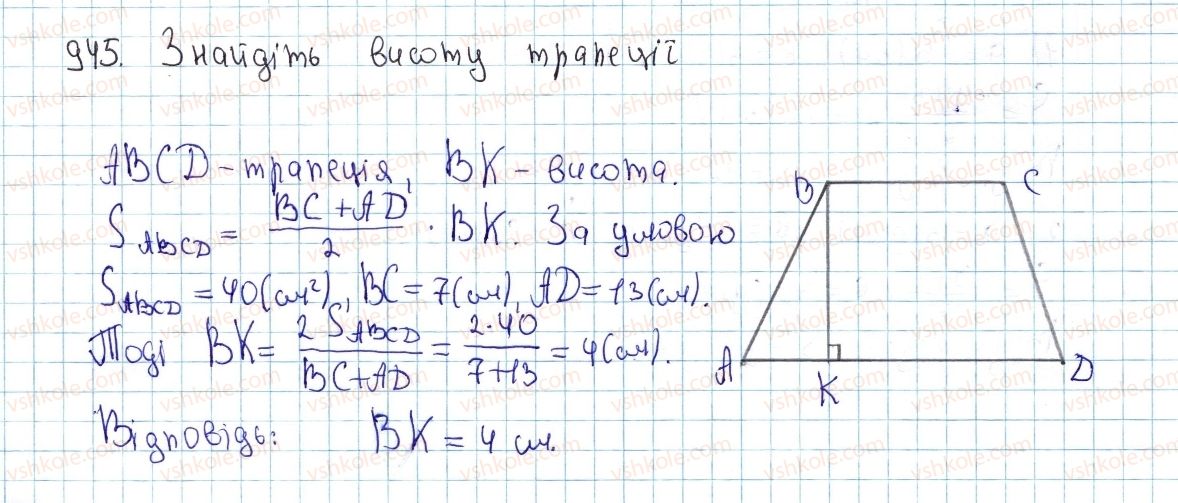 945. Знайдіть висоту трапеції
ABCD - трапеція, BK - висота.
S_ABCD = (BC + AD)/2 · BK. За умовою
S_ABCD = 40 (см²), BC = 7 (см), AD = 13 (см).
Тоді BK = 2 S_ABCD/(BC + AD) = 2·40/(7+13) = 4 (см).
Відповідь: BK = 4 см.
B C
A K D
vshkole.com